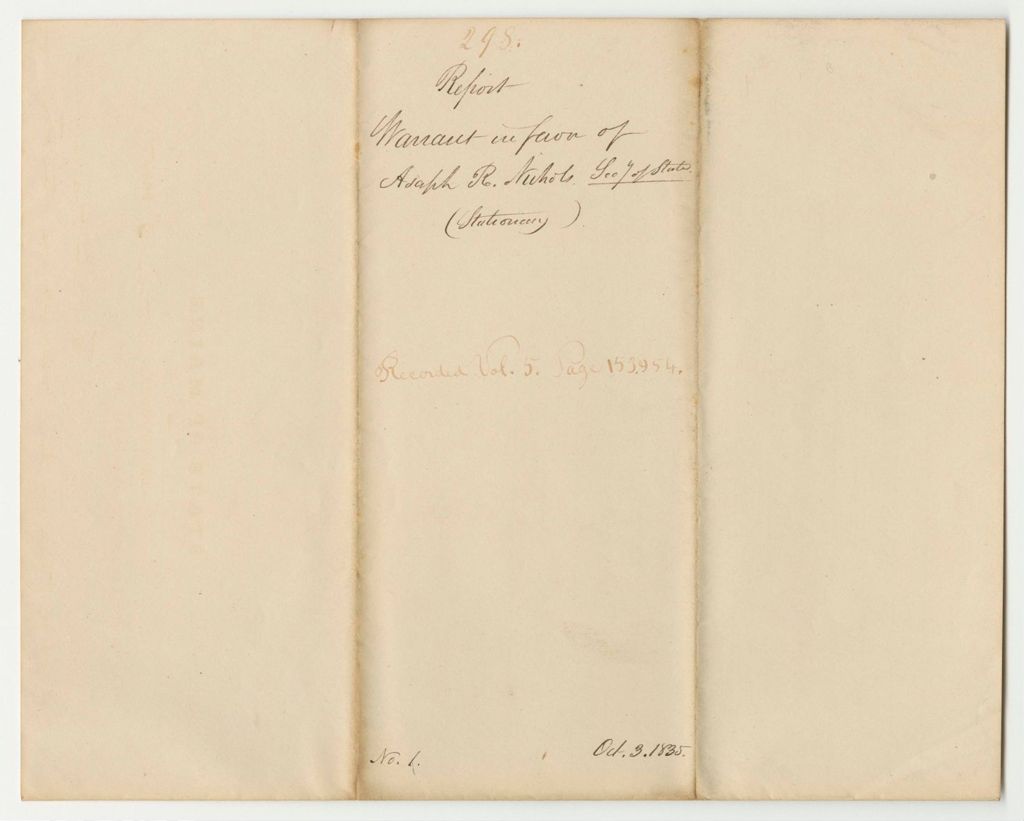 298.
Report
Warrant in favor of
Asaph R. Nichols Secy of State
(Stationary)
Recorded Vol. 5. Page 153 & 54.
No. 1.
Oct. 3. 1835.